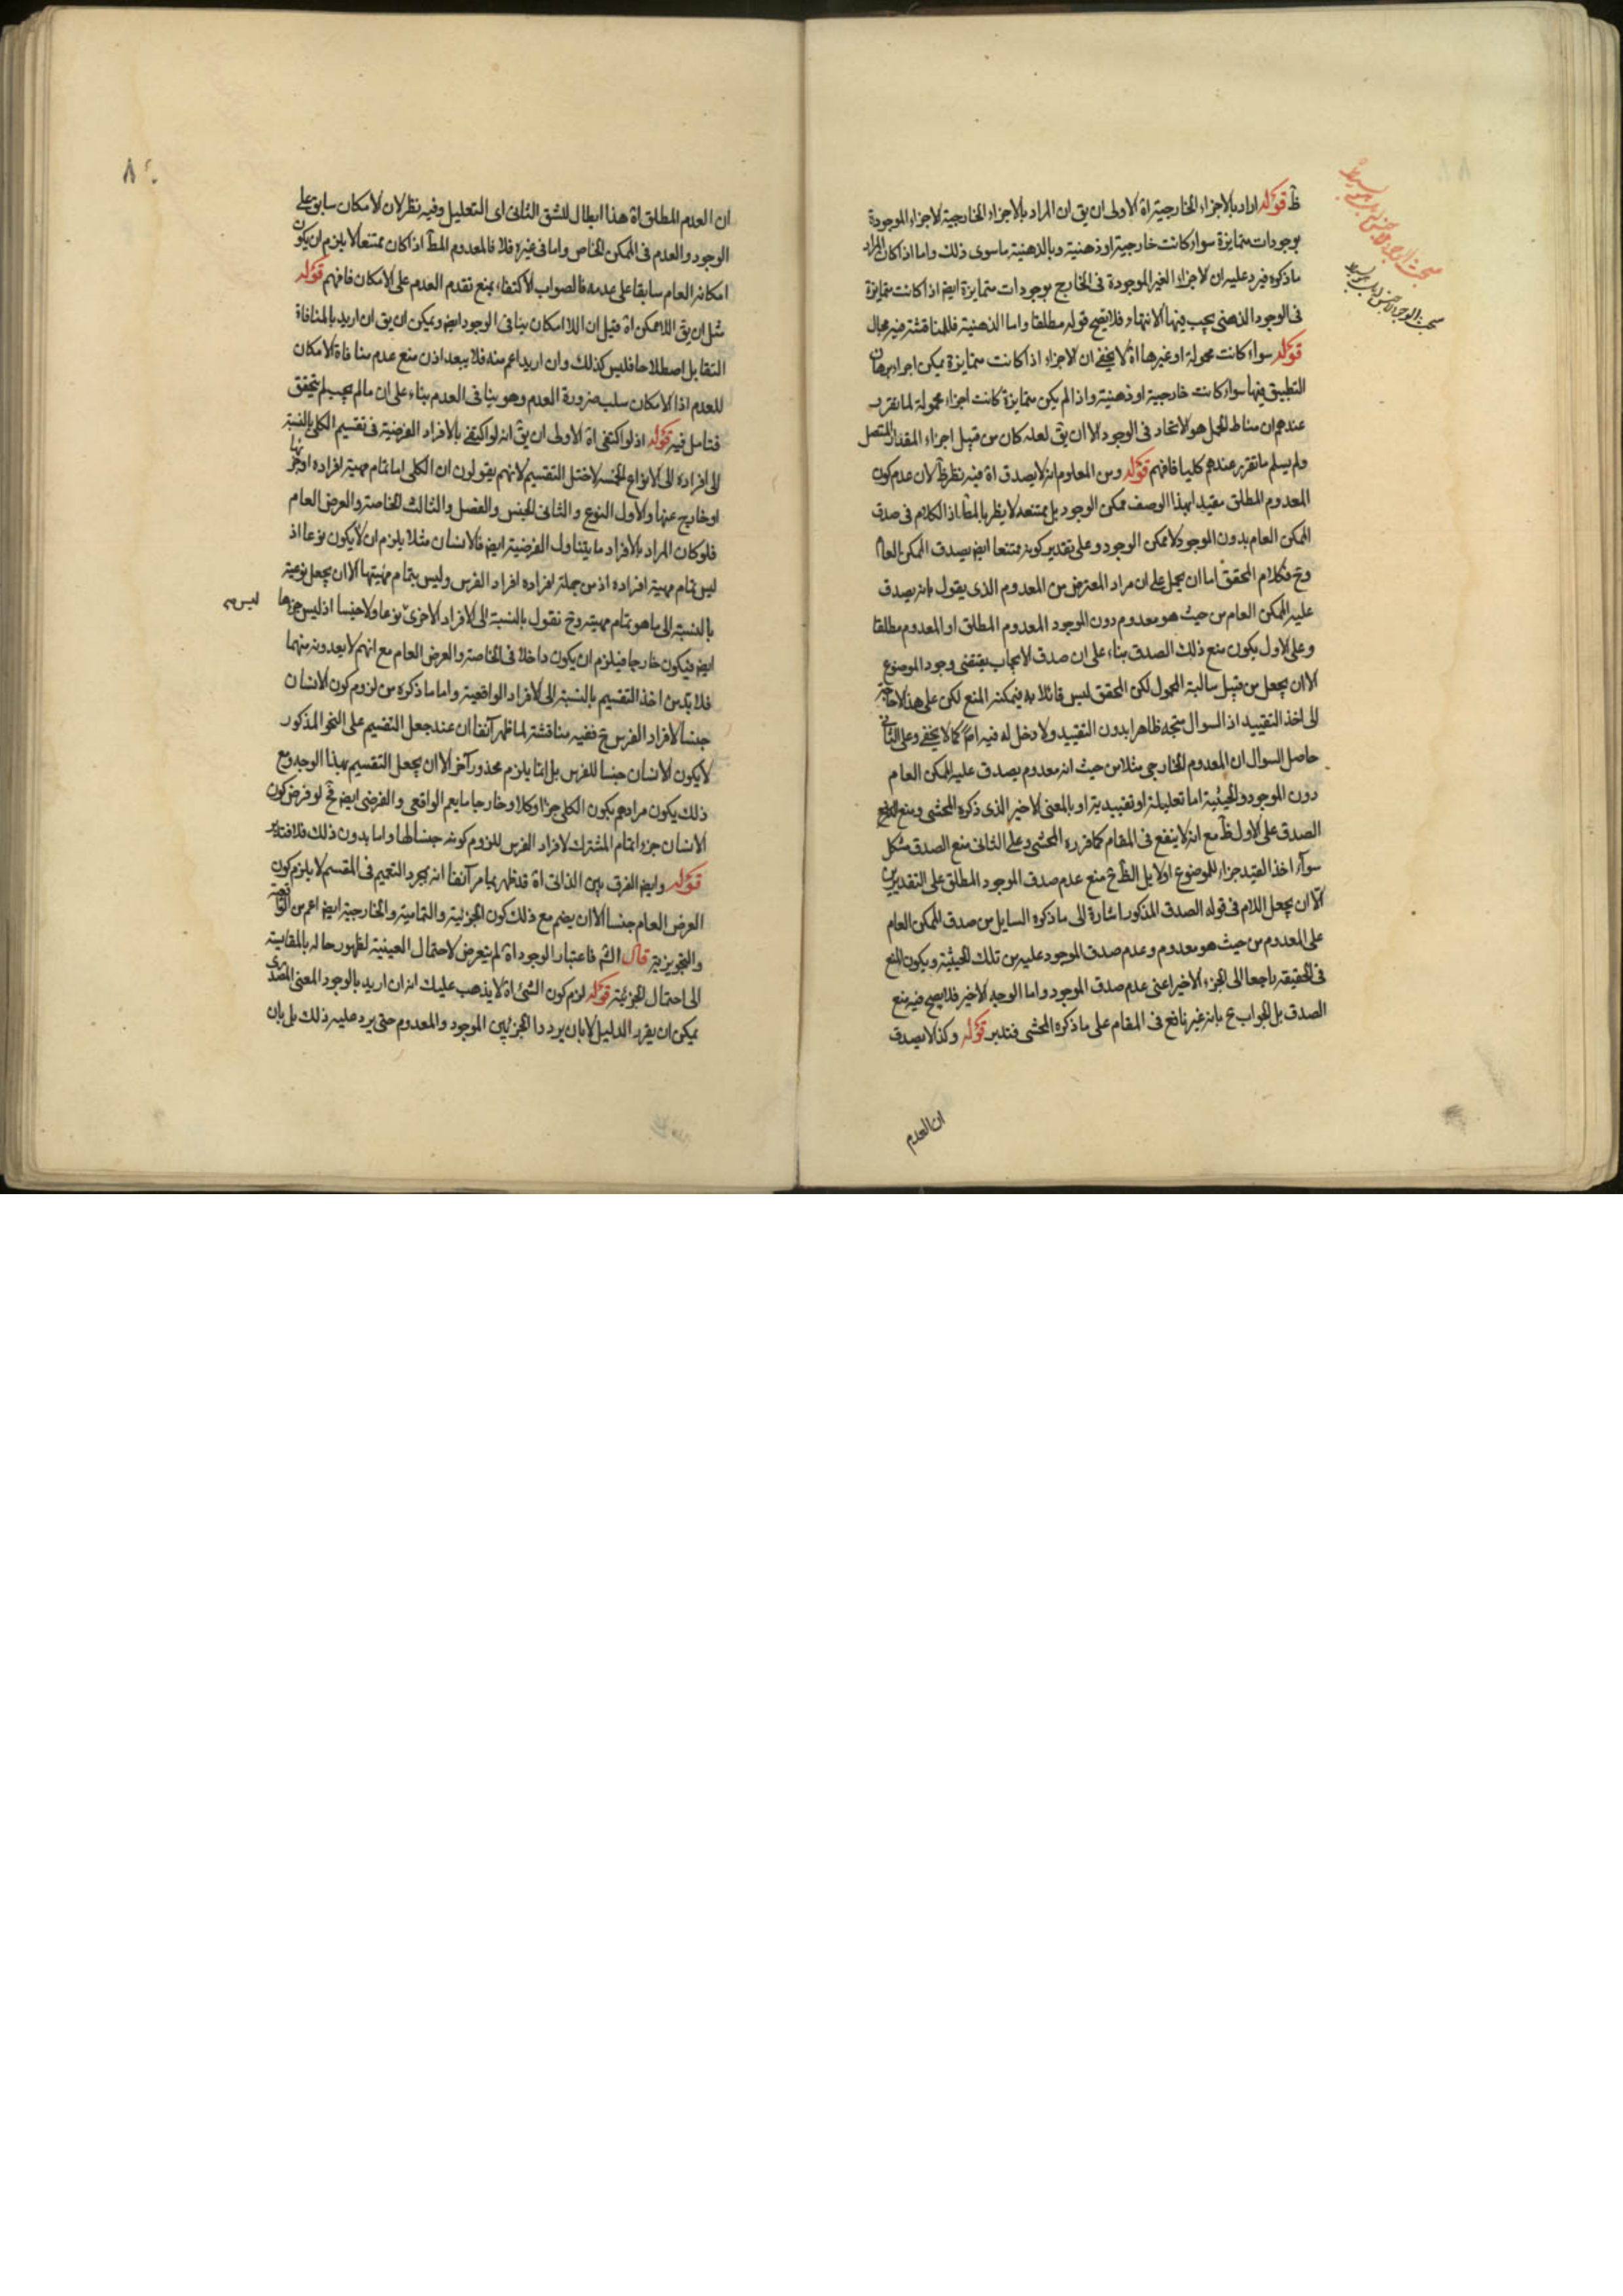 ظ قوله اراد بالاجزاء الخارجية اه الاولى ان يق ان المراد بالاجزاء الخارجية الاجزاء الموجودة
بوجودات متمايزة سواء كانت خارجية او ذهنية وبالذهنية ما سوى ذلك واما اذا كان المراد
ما ذكره فيرد عليه ان الاجزاء الغير الموجودة فى الخارج بوجودات متمايزة ايض اذا كانت متمايزة
فى الوجود الذهنى يجب فيها الانتهاء فلا يصح قوله مطلقا واما الذهنية فللمناقشة فيه مجال
قوله سواء كانت محمولة او غيرها اه لا يخفى ان الاجزاء اذا كانت متمايزة يمكن اجراء برهان
التطبيق فيها سواء كانت خارجية او ذهنية واذا لم يكن متمايزة كانت اجزاء محمولة لما تقرر
عندهم ان مناط الحمل هو الاتحاد فى الوجود الا ان يق لعله كان من قبيل اجزاء المقدار المتصل
ولم يسلم ما تقرر عندهم كليا فافهم قوله ومن المعلوم انه لا يصدق اه فيه نظر ظ لان عدم كون
المعدوم المطلق مقيدا بهذا الوصف ممكن الوجود بل يمتنعه لا يظر بالمط اذ الكلام فى صدق
الممكن العام بدون الموجود لا ممكن الوجود وعلى تقدير كونه ممتنعا ايض يصدق الممكن العام
وح فكلام المحقق اما ان يحمل على ان مراد المعترض من المعدوم الذى يقول بانه يصدق
عليه الممكن العام من حيث هو معدوم دون الموجود المعدوم المطلق او المعدوم مطلقا
وعلى الاول يكون منع ذلك الصدق بناء على ان صدق الايجاب يقتضى وجود الموضوع
الا ان يجعل من قبيل سالبة المحمول لكن المحقق ليس قائلا به فيمكنه المنع لكن على هذا لا حاجة
الى اخذ التقييد اذ السوال متجه ظاهرا بدون التقييد ولا دخل له فيه اصلا كما لا يخفى وعلى الثانى
حاصل السوال ان المعدوم الخارجى مثلا من حيث انه معدوم يصدق عليه الممكن العام
دون الموجود والحيثية اما تعليلية او تقييدية او بالمعنى الاخير الذى ذكره المحشى ومنع
الصدق على الاول ظ مع انه لا ينفع فى المقام كما قرره المحشى وعلى الثانى منع الصدق مشكل
سواء اخذ القيد جزاء للموضوع اولا بل الظ ح منع عدم صدق الموجود المطلق على التقديرين
الا ان يجعل اللام فى قوله الصدق المذكور اشارة الى ما ذكره السايل من صدق الممكن العام
على المعدوم من حيث هو معدوم وعدم صدق الموجود عليه من تلك الحيثية ويكون المنع
فى الحقيقة راجعا الى الجزء الاخير اعنى عدم صدق الموجود واما الوجه الاخير فلا يصح فيه منع
الصدق بل الجواب ح بانه غير نافع فى المقام على ما ذكره المحشى فتدبر قوله وكذا لا يصدق
ان العدم
ان العدم المطلق اه هذا ابطال للشق الثانى اى التعليل وفيه نظر لان الامكان سابق على
الوجود والعدم فى الممكن الخاص واما فى غيره فلا فالمعدوم المط اذا كان ممتنعا لا يلزم ان يكون
امكانه العام سابقا على عدمه فالصواب الاكتفاء بمنع تقدم العدم على الامكان فافهم قوله
مثل ان يق اللاممكن اه قيل ان اللاامكان ينافى الوجود ايض ويمكن ان يق ان اريد بالمنافاة
التقابل اصطلاحا فليس كذلك وان اريد اعم منه فلا يبعد اذن منع عدم منافاة الامكان
للعدم اذ الامكان سلب ضرورة العدم وهو ينافى العدم بناء على ان ما لم يجب لم يتحقق
فتامل فيه قوله اذ لو اكتفى اه الاولى ان يق انه لو اكتفى بالافراد الفرضية فى تقسيم الكلى بالنسبة
الى افراده الى الانواع الخمسة لاختل التقسيم لانهم يقولون ان الكلى اما تمام مهية افراده او جزئها
او خارج عنها والاول النوع والثانى الجنس والفصل والثالث الخاصة والعرض العام
فلو كان المراد بالافراد ما يتناول الفرضية ايض فالانسان مثلا يلزم ان لا يكون نوعا اذ
ليس تمام مهية افراده اذ من جملة افراده افراد الفرس وليس بتمام مهيتها الا ان يجعل نوعية
بالنسبة الى ما هو تمام مهيته وح نقول بالنسبة الى الافراد الاخرى نوعا ولا جنسا اذ ليس جزءها
ليس
ايض فيكون خارجا فيلزم ان يكون داخلا فى الخاصة والعرض العام مع انهم لا يعدونه منهما
فلا بد من اخذ التقسيم بالنسبة الى الافراد الواقعية واما ما ذكره من لزوم كون الانسان
جنسا لافراد الفرس ح ففيه مناقشة لما ظهر آنفا ان عند جعل التقسيم على النحو المذكور
لا يكون الانسان جنسا للفرس بل انما يلزم محذور آخر الا ان يجعل التقسيم بهذا الوجه ومع
ذلك يكون مرادهم بكون الكلى جزءا او كلا او خارجا ما يعم الواقعى والفرضى ايض فح لو فرض كون
الانسان جزءا تمام المشترك لافراد الفرس للزوم كونه جنسا لها واما بدون ذلك فلا فتدبر
قوله وايض الفرق بين الذاتى اه قد ظهر بما مر آنفا انه بمجرد التعميم فى المقسم لا يلزم كون
العرض العام جنسا الا ان يضم مع ذلك كون الجزئية والتمامية والخارجية ايض اعم من الواقعية
والتجويزية قال الشم فاعتبار الوجود اه لم يتعرض لاحتمال العينية لظهور حاله بالمقايسة
الى احتمال الجزئية قوله لزم كون الشئ اه لا يذهب عليك انه ان اريد بالوجود المعنى المصدرى
يمكن ان يقرر الدليل لا بان يردد الجزئين الموجود والمعدوم حتى يرد عليه ذلك بل بان